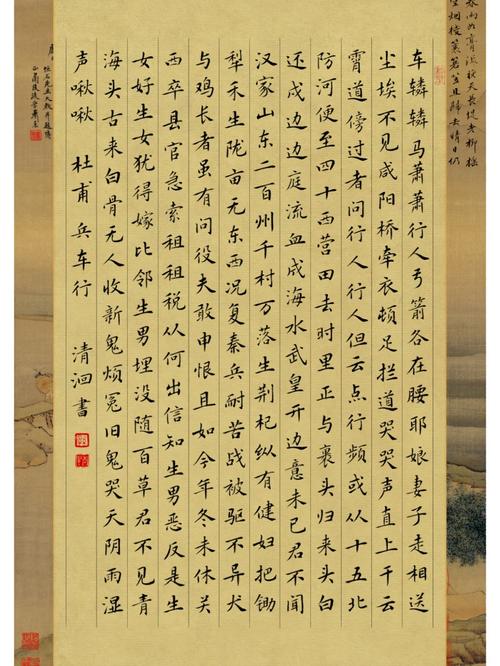 车辚辚马萧萧行人弓箭各在腰耶娘妻子走相送
尘埃不见咸阳桥牵衣顿足拦道哭哭声直上干云
霄道傍过者问行人行人但云点行频或从十五北
防河便至四十西营田去时里正与裹头归来头白
还戍边边庭流血成海水武皇开边意未已君不闻
汉家山东二百州千村万落生荆杞纵有健妇把锄
犁禾生陇亩无东西况复秦兵耐苦战被驱不异犬
与鸡长者虽有问役夫敢申恨且如今年冬未休关
西卒县官急索租租税从何出信知生男恶反是生
女好生女犹得嫁比邻生男埋没随百草君不见青
海头古来白骨无人收新鬼烦冤旧鬼哭天阴雨湿
声啾啾 杜甫 兵车行 清洄书